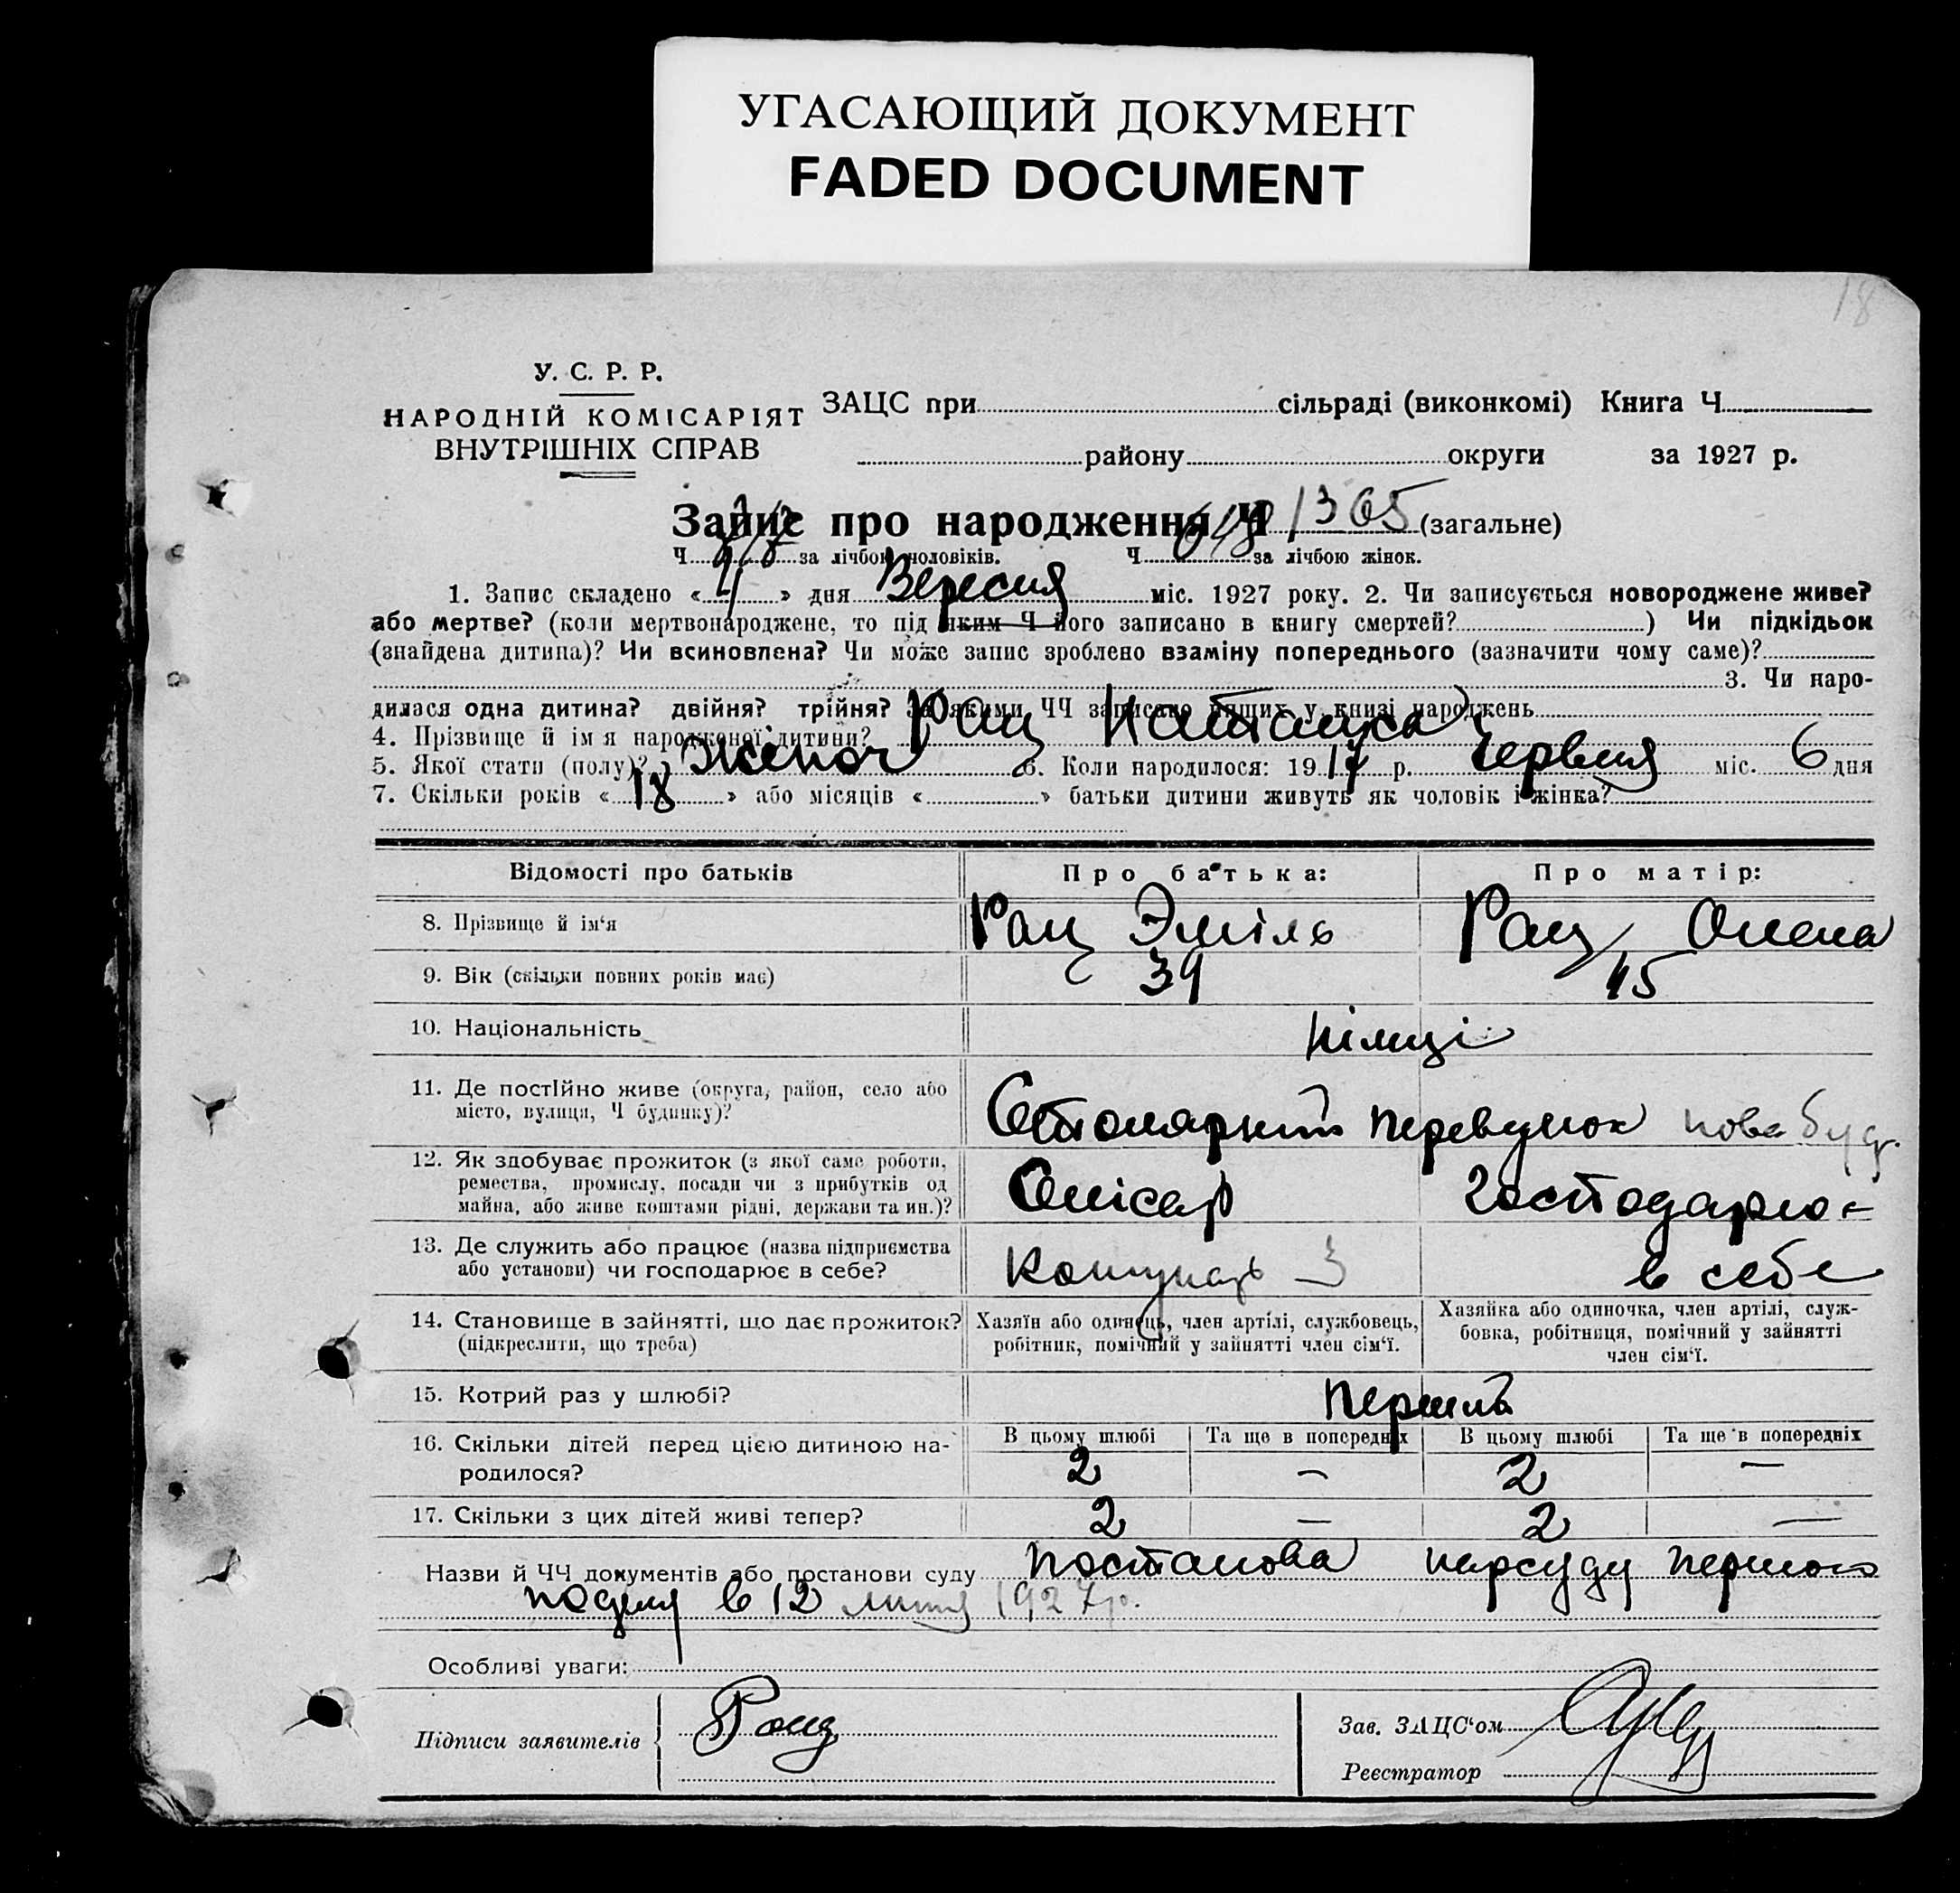 УГАСАЮЩИЙ ДОКУМЕНТ
FADED DOCUMENT
18
У. С. Р. Р.
НАРОДНІЙ КОМІСАРІЯТ
ВНУТРІШНІХ СПРАВ
ЗАЦС при сільраді (виконкомі) Книга Ч.
району округи за 1927 р.
Запис про народження Ч 1365 (загальне)
Ч. за лічбою чоловіків. Ч. 648 за лічбою жінок.
1. Запис складено « » дня Вересня міс. 1927 року. 2. Чи записується новороджене живе?
або мертве? (коли мертвонароджене, то під яким Ч його записано в книгу смертей? ) Чи підкідьок
(знайдена дитина)? Чи всиновлена? Чи може запис зроблено взаміну попереднього (зазначити чому саме)?
3. Чи наро-
дилася одна дитина? двійня? трійня? За якими ЧЧ записано инших у книзі народжень
4. Прізвище й ім'я народженої дитини? Рац
5. Якої стати (полу)? Жіноч 6. Коли народилося: 1917 р. Червня міс. 6 дня
7. Скільки років « 18 » або місяців « » батьки дитини живуть як чоловік і жінка?
Відомості про батьків Про батька: Про матір:
8. Прізвище й ім'я Рац Эміль Рац Олена
9. Вік (скільки повних років має) 39 45
10. Національність Німці
11. Де постійно живе (округа, район, село або
місто, вулиця, Ч будинку)? Столярний перевулок нова буд.
12. Як здобуває прожиток (з якої саме роботи,
ремества, промислу, посади чи з прибутків од
майна, або живе коштами рідні, держави та ин.)? господарює
13. Де служить або працює (назва підприємства
або установи) чи господарює в себе? в себе
14. Становище в зайнятті, що дає прожиток?
(підкреслити, що треба)
Хазяїн або одинець, член артілі, службовець,
робітник, помічний у зайнятті член сім'ї.
Хазяйка або одиночка, член артілі, служ-
бовка, робітниця, помічний у зайнятті
член сім'ї.
15. Котрий раз у шлюбі? Перший
16. Скільки дітей перед цією дитиною на-
родилося?
В цьому шлюбі Та ще в попередніх В цьому шлюбі Та ще в попередніх
2 — 2 —
17. Скільки з цих дітей живі тепер? 2 — 2 —
Назви й ЧЧ документів або постанови суду Постанова нарсуду першого
в 12 липня 1927 р.
Особливі уваги:
Підписи заявителів Рац
Зав. ЗАЦС'ом
Реєстратор